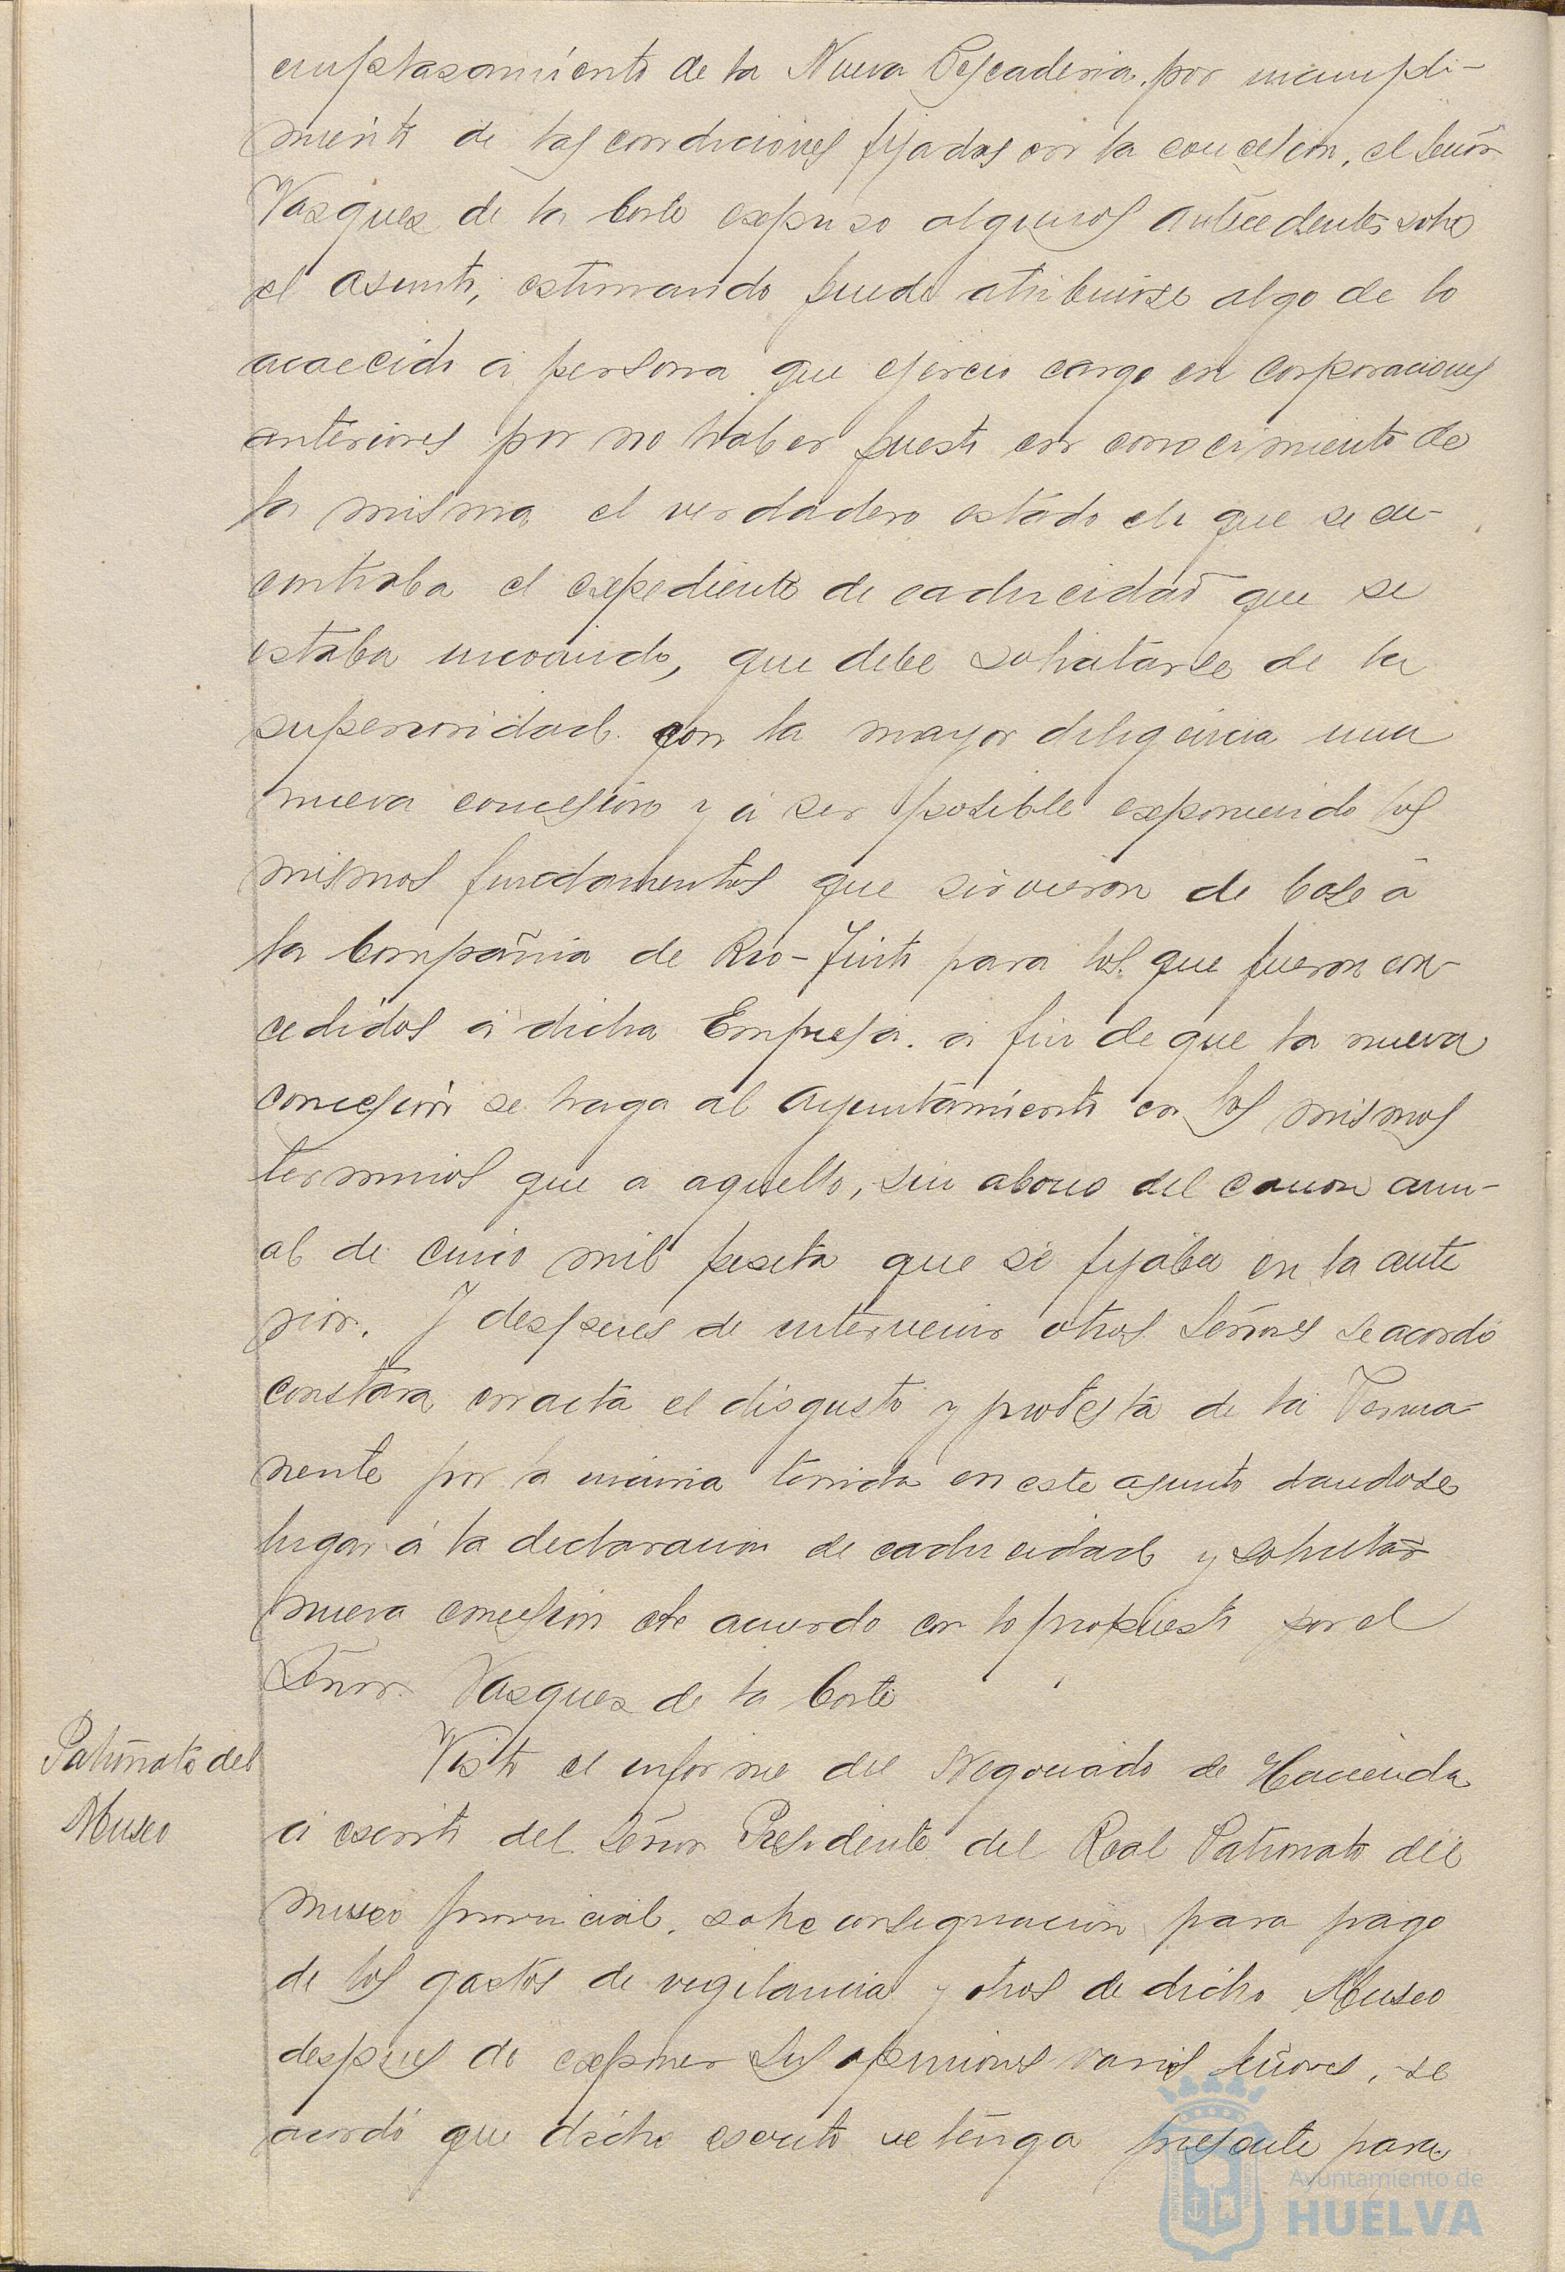 emplasamiento de la Nueva Pescaderia, por incumpli-
miento de las condiciones fijadas en la concesion, el Señor
Vasques de la Corte expuso algunos antecedentes sobre
el asunto, estimando puede atribuirse algo de lo
acaecido á persona que ejercio cargo en corporaciones
anteriores por no haber puesto en conocimiento de
la misma el verdadero estado en que se en-
contraba el expediente de caducidad que se
estaba incoando, que debe solicitarse de la
superioridad con la mayor diligencia una
nueva concesion y á ser posible exponiendo los
mismos fundamentos que sirvieron de base á
la Compañia de Rio-Tinto para los que fueron con-
cedidos á dicha Empresa. á fin de que la nueva
concesion se haga al Ayuntamiento en los mismos
terminos que a aquella, sin abono del canon anu-
al de cinco mil peseta que se fijaba en la ante
rior. Y despues de intervenir otros Señores se acordó
constara en acta el disgusto y protesta de la Perma-
nente por la incuria tenida en este asunto dandose
lugar á la declaracion de caducidad y solicitar
nueva concesion de acuerdo con lo propuesto por el
Señor Vasques de la Corte
Patronato del
Museo
Visto el informe del Negociado de Hacienda
á escrito del Señor Presidente del Real Patronato del
museo provincial, sobre consignacion para pago
de los gastos de vigilancia y otros de dicho Museo
despues de exponer sus opiniones varios Señores, se
acordó que dicho escrito se tenga presente para
Ayuntamiento de
HUELVA